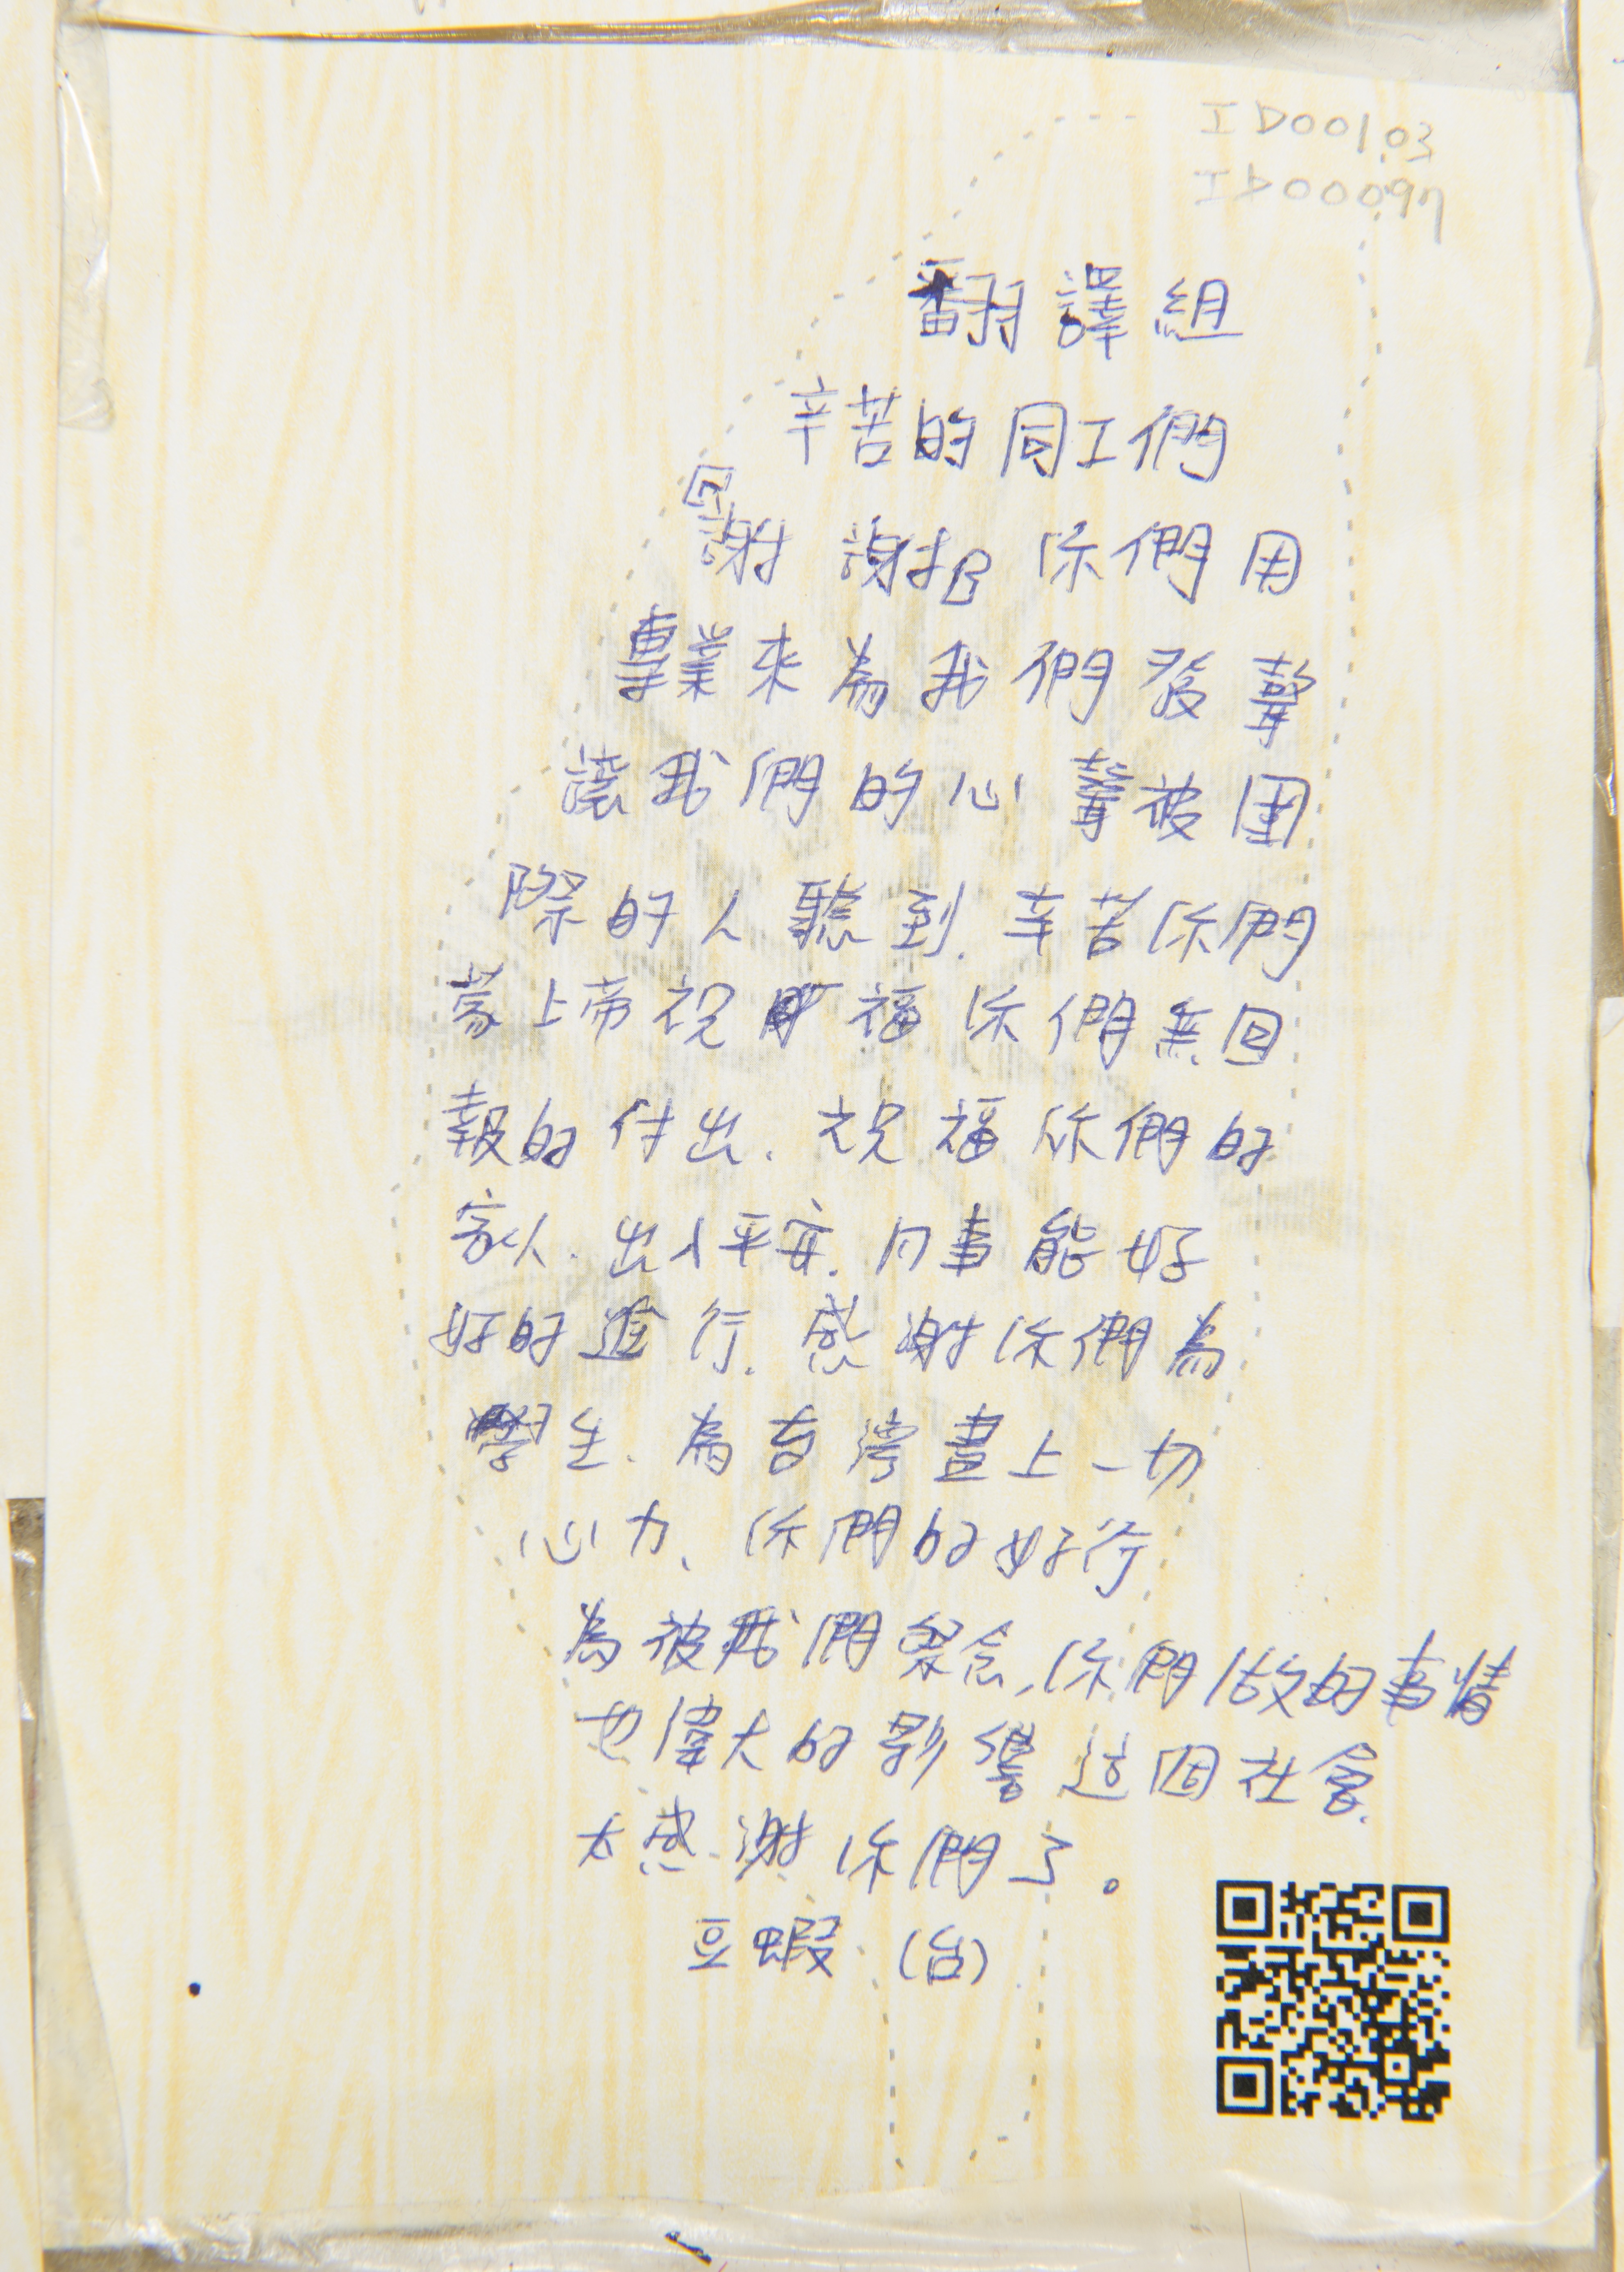 ID00103
ID00097
翻譯組
辛苦的同工們
回
謝謝 你們用
專業來為我們發聲
讓我們的心聲被國
際的人聽到.辛苦你們
蒙上帝祝福你們無回
報的付出.祝福你們的
家人.出入平安.凡事能好
好的進行.感謝你們為
學生.為台灣盡上一切
心力、你們的好行
為被我們紀念,你們做的事情
也偉大的影響這個社會.
太感謝你們了。
豆蝦 (台)